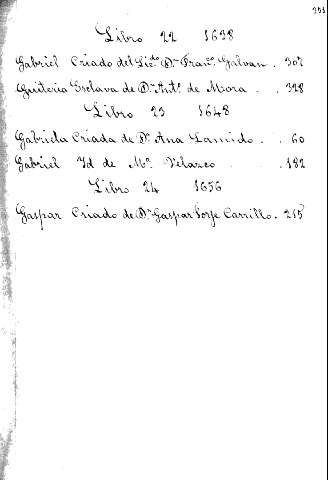 251
Libro 22 1638
Gabriel Criado del Licdo Dn Franco Galvan . 307
Guiteria Esclava de Dn Anto de Mora . . 328
Libro 23 1648
Gabriela Criada de Da Ana . . 60
Gabriel Id de Ma Velazco . . 182
Libro 24 1656
Gaspar Criado de Dn Gaspar Jorje Carrillo . 215